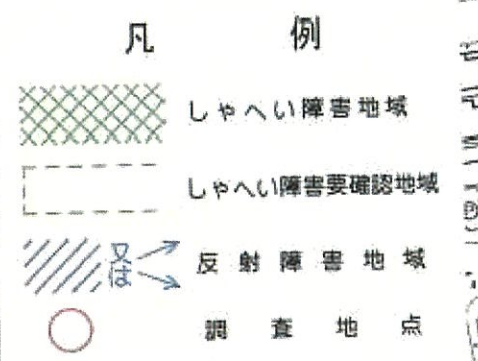 凡例
しゃへい障害地域
しゃへい障害要確認地域
又は 反射障害地域
調査地点